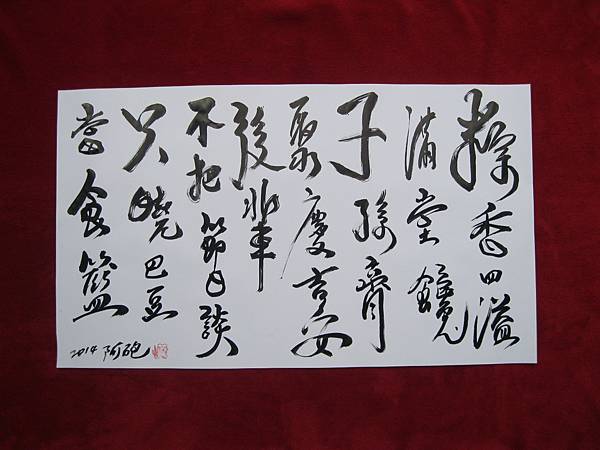 粽香四溢
滿堂饞
子孫齊
聚慶吉安
後輩
不把節日談
只曉巴豆
當食籃
2014 阿砲